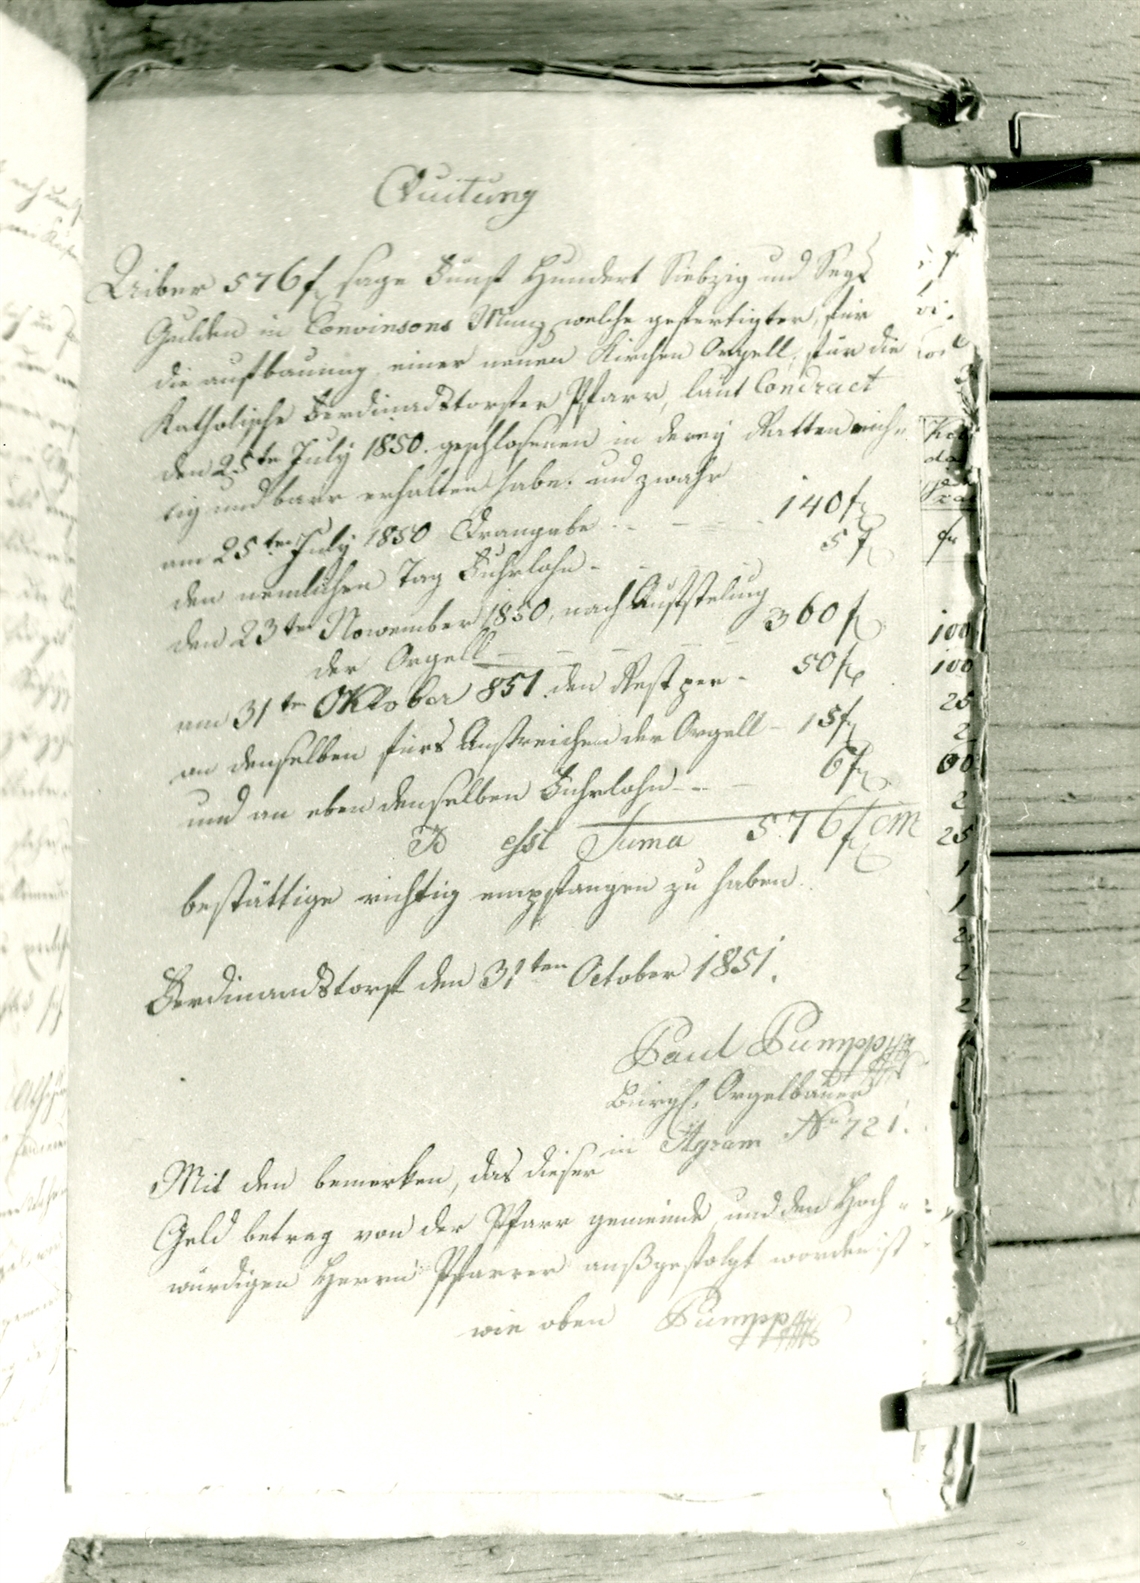 Quitung
Uiber 576 f sage Fünf Hundert Siebzig und Sechs
Gulden in Convinsons Münz, welche gefertigter, für
die aufbauung einer neuen Kirchen Orgell, für die
Katholische Ferdinandstorfer Pfarr, laut Condract
den 25te July 1850. geschlossenen in dreÿ Ratten rich-
tig und barr erhalten habe. und zwahr
am 25ten July 1850 Drangabe - - - 140 f
den nemlichen Tag Fuhrlohn - - - 5 f
den 23ten November 1850, nach Aufstelung
der Orgell - - - 360 f
am 31te Oktober 851 den Rest per - 50 f
an denselben fürs Anstreichen der Orgell - 15 f
und an eben denselben Fuhrlohn - - - 6 f
Suma 576 f CM
bestättige richtig empfangen zu haben.
Ferdinandstorf den 31ten October 1851.
Paul Pumpp
Bürgl. Orgelbauer
in Agram No 721.
Mit den bemerken, das dieser
Geld betrag von der Pfarr gemeinde, und den Hoch-
würdigen Herrn Pfarrer außgefolgt worden ist
wie oben Pumpp
100
100
25
2
60
2
25
1
1
2
2
2